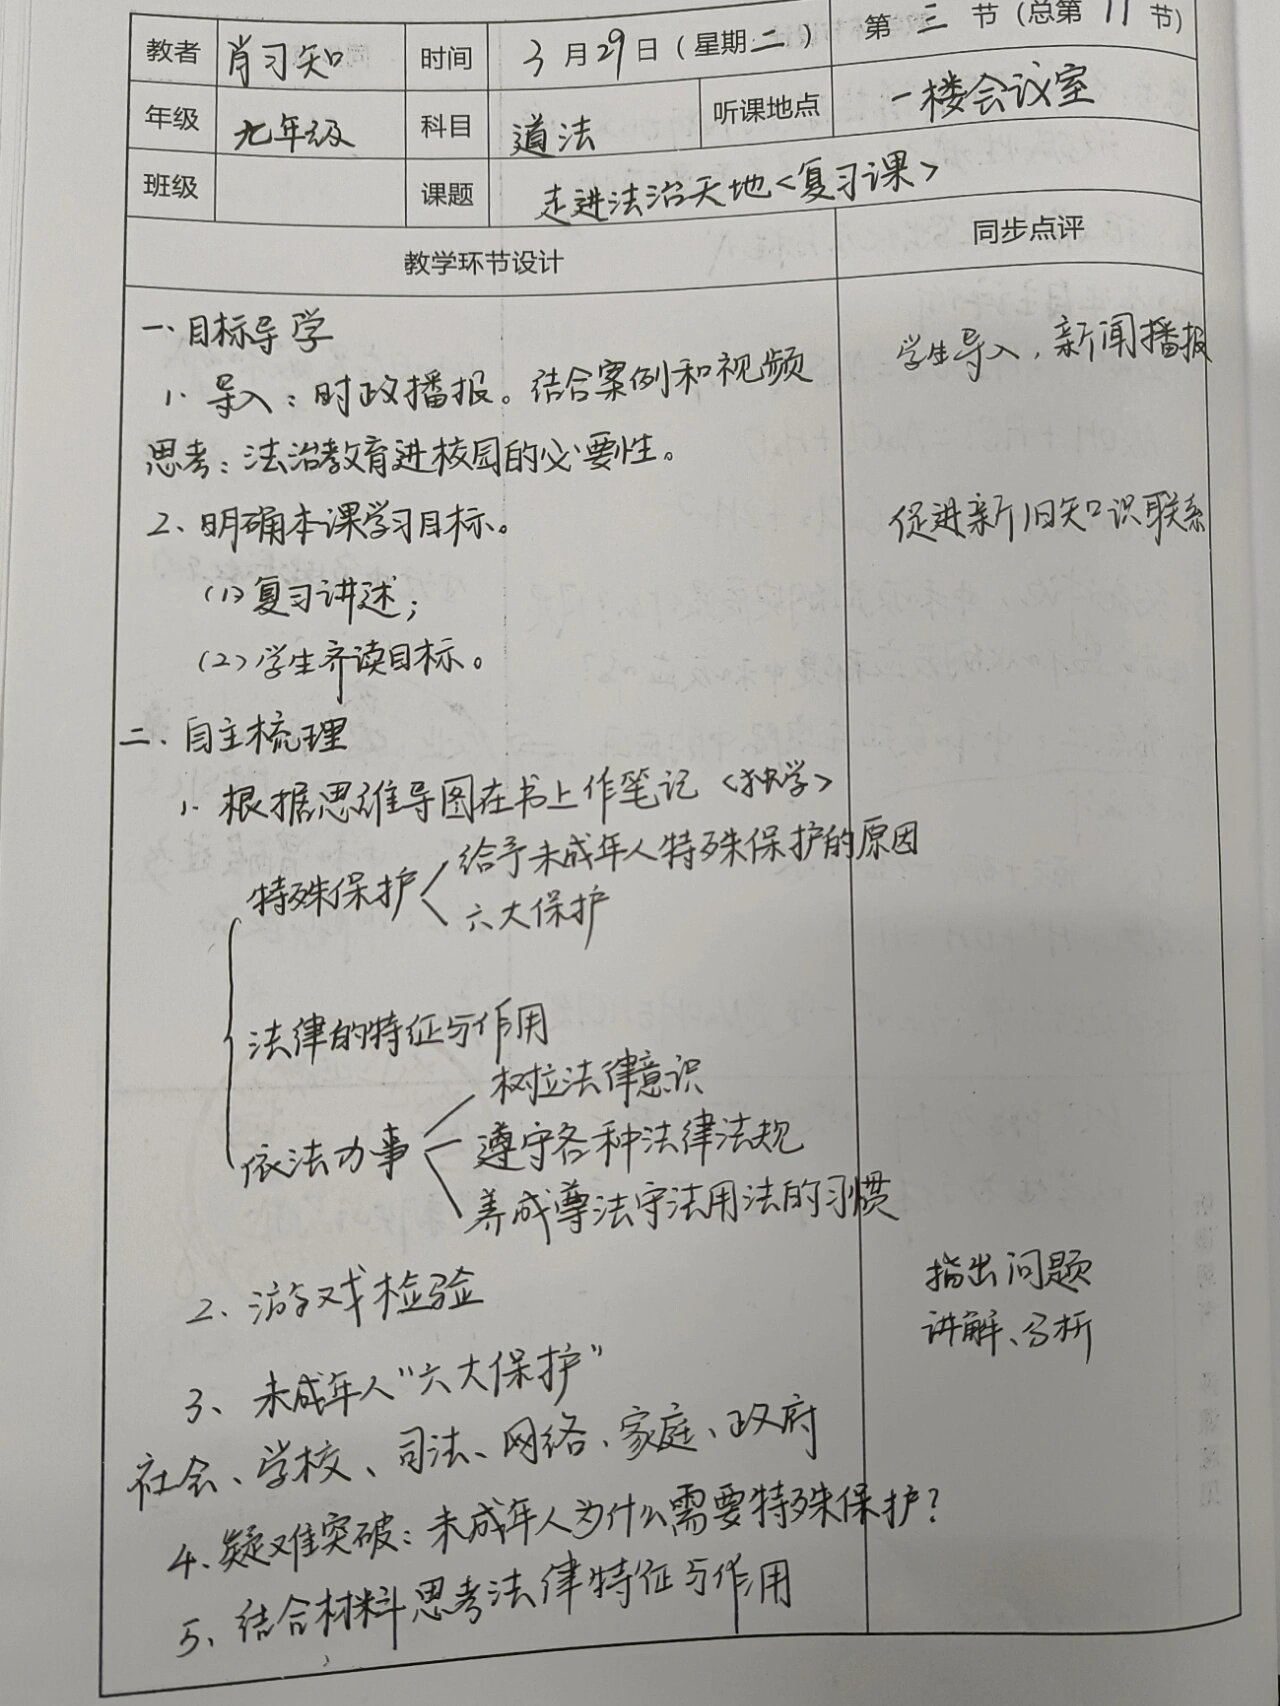 教者 肖习知 时间 3月29日（星期二） 第三节（总第11节）
年级 九年级 科目 道法 听课地点 一楼会议室
班级 课题 走进法治天地<复习课>
教学环节设计 同步点评
一、目标导学
1. 导入：时政播报。结合案例和视频
学生导入，新闻播报
思考：法治教育进校园的必要性。
2、明确本课学习目标。
促进新旧知识联系
(1)复习讲述；
(2)学生齐读目标。
二、自主梳理
1. 根据思维导图在书上作笔记<独学>
特殊保护 给予未成年人特殊保护的原因
六大保护
法律的特征与作用
依法办事 树立法律意识
遵守各种法律法规
养成尊法守法用法的习惯
2、游戏检验
指出问题
讲解、分析
3、未成年人“六大保护”
社会、学校、司法、网络、家庭、政府
4、疑难突破：未成年人为什么需要特殊保护？
5、结合材料思考法律特征与作用